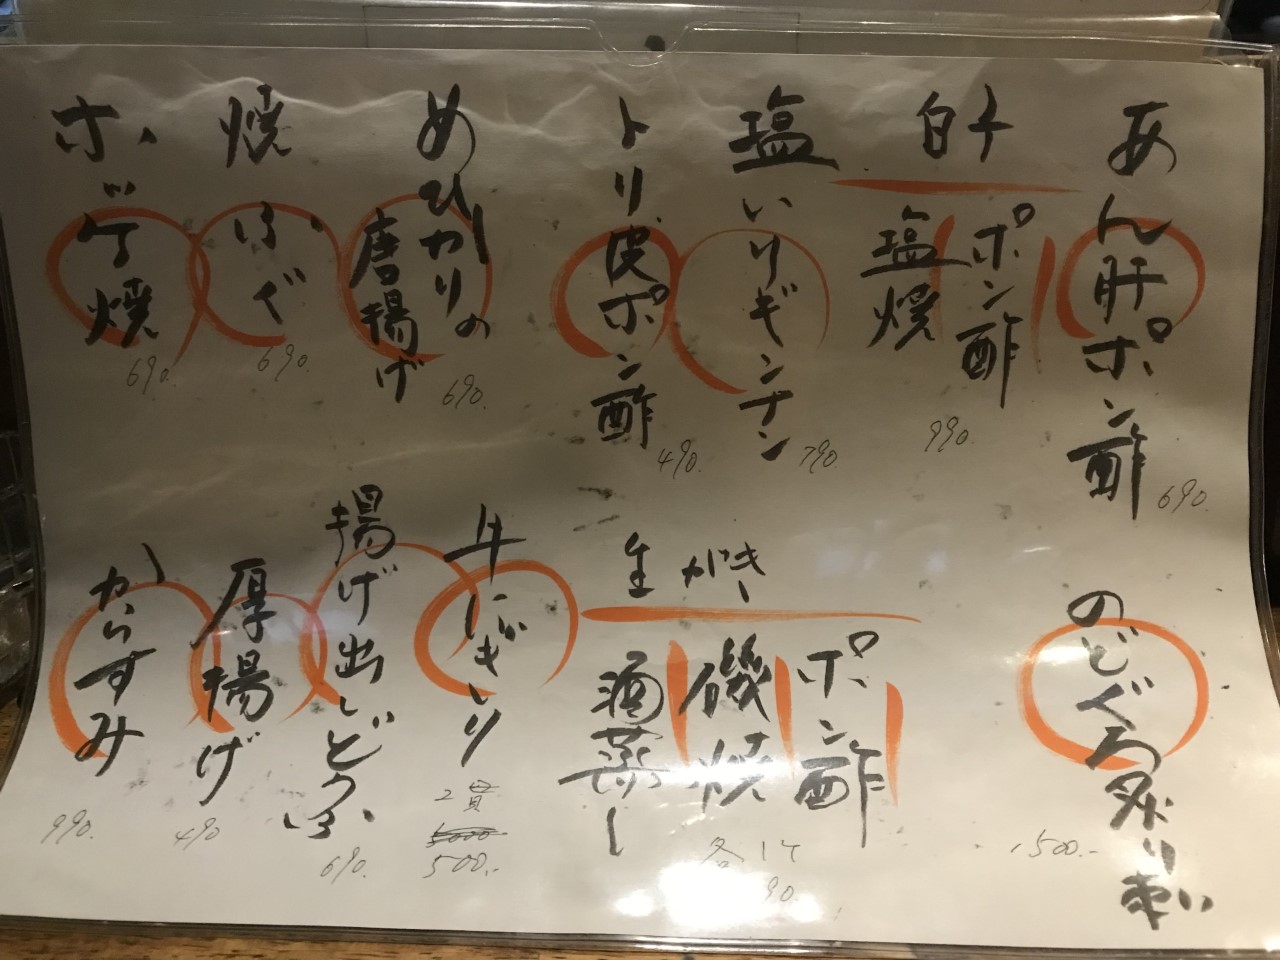 あん肝ポン酢
690
白子
ポン酢
塩焼
990.
塩いりギンナン
790.
トリ皮ポン酢
490.
めひかりの
唐揚げ
690.
焼ふぐ
690.
ホッケ焼
690.
のどぐろ炙り刺し
1500.-
生がき
ポン酢
磯焼
酒蒸し
各1ケ
90.
牛にぎり
2貫
500.-
揚げ出しどうふ
690.
厚揚げ
490
からすみ
990.